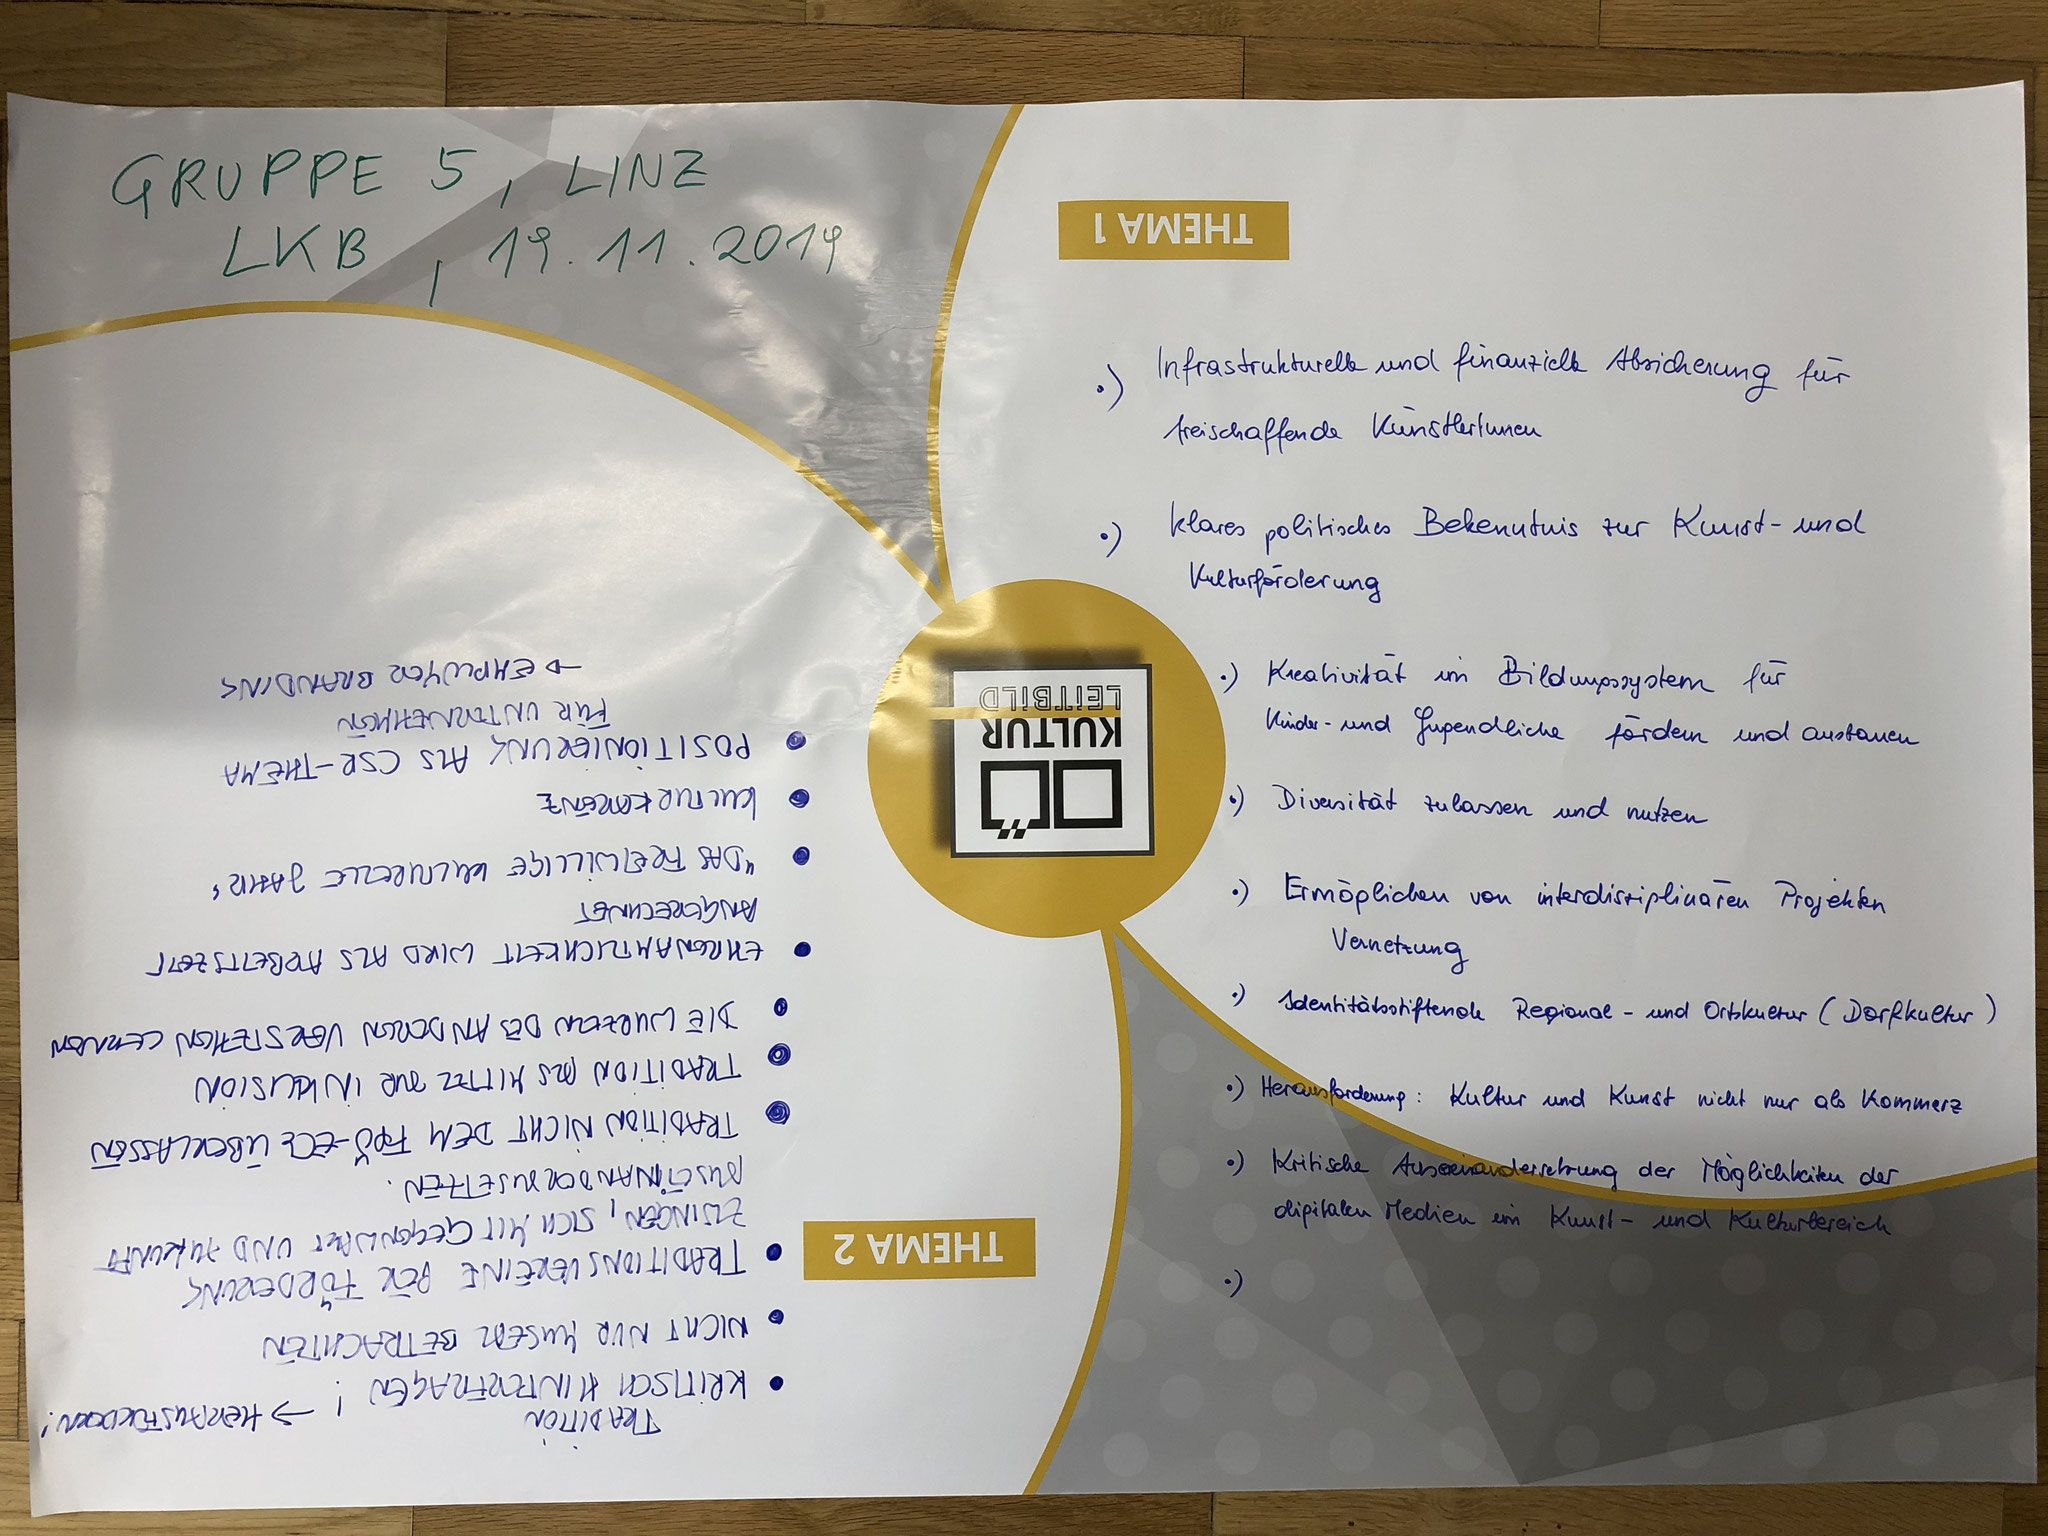 GRUPPE 5, LINZ
LKB, 19.11.2019
THEMA 1
.) Infrastrukturelle und finanzielle Absicherung für
freischaffende KünstlerInnen
.) klares politisches Bekenntnis zur Kunst- und
Kulturförderung
.) Kreativität im Bildungssystem für
Kinder- und Jugendliche fördern und ausbauen
.) Diversität zulassen und nutzen
.) Ermöglichen von interdisziplinären Projekten
Vernetzung
.) Identitätsstiftende Regional- und Ortskultur (Dorfkultur)
.) Herausforderung: Kultur und Kunst nicht nur als Kommerz
.) Kritische Auseinandersetzung der Möglichkeiten der
digitalen Medien im Kunst- und Kulturbereich
.)
OÖ
KULTUR
LEITBILD
THEMA 2
TRADITION
• KRITISCH HINTERFRAGEN! → HERAUSFORDERN!
• NICHT NUR MUSEAL BETRACHTEN
• TRADITIONSVEREINE PER FÖRDERUNG
ZWINGEN, SICH MIT GEGENWART UND ZUKUNFT
AUSEINANDERZUSETZEN.
• TRADITION NICHT DEM FPÖ-ECK ÜBERLASSEN
• TRADITION ALS MITTEL ZUR INKLUSION
• DIE WURZELN DES ANDEREN VERSTEHEN LERNEN
• EHRENAMTLICHKEIT WIRD ALS ARBEITSZEIT
ANGERECHNET
• "DAS FREIWILLIGE KULTURELLE JAHR"
• KULTURKARENZ
• POSITIONIERUNG ALS CSR-THEMA
FÜR UNTERNEHMEN
→ EMPLOYER BRANDING